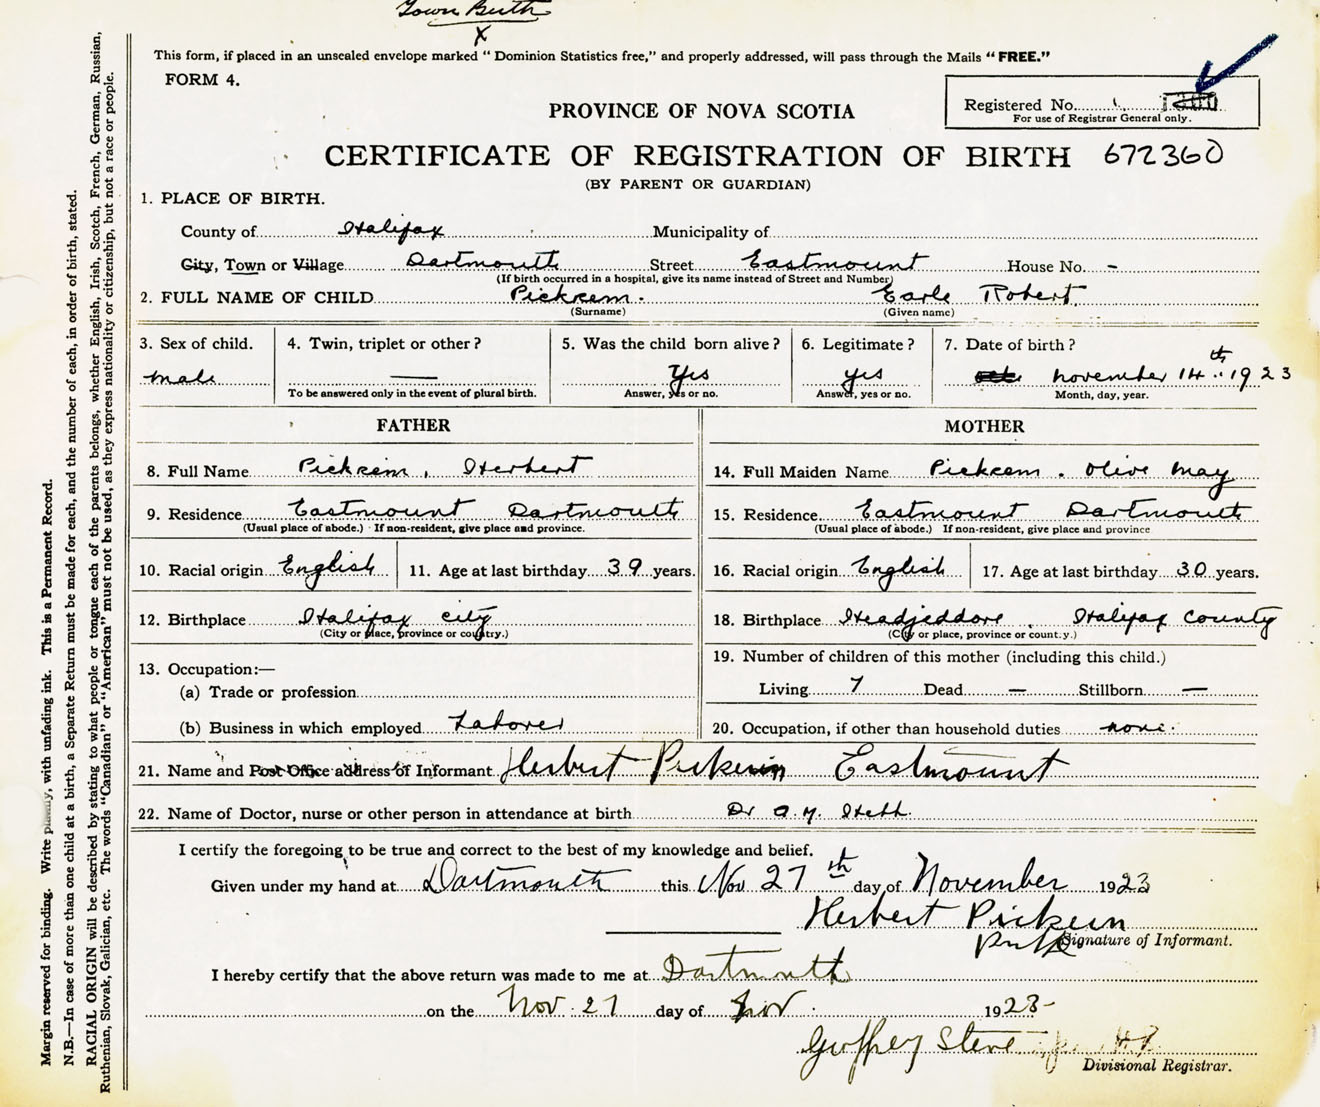 Town Birth
X
This form, if placed in an unsealed envelope marked “ Dominion Statistics free,” and properly addressed, will pass through the Mails “ FREE.”
FORM 4.
Registered No.
For use of Registrar General only.
PROVINCE OF NOVA SCOTIA
CERTIFICATE OF REGISTRATION OF BIRTH 672360
(BY PARENT OR GUARDIAN)
1. PLACE OF BIRTH.
County of Halifax Municipality of
City, Town or Village Dartmouth Street Eastmount House No. -
(If birth occurred in a hospital, give its name instead of Street and Number)
2. FULL NAME OF CHILD Pickrem. Earle Robert
(Surname) (Given name)
3. Sex of child. 4. Twin, triplet or other? 5. Was the child born alive? 6. Legitimate? 7. Date of birth?
male — Yes yes november 14th 1923
To be answered only in the event of plural birth. Answer, yes or no. Answer, yes or no. Month, day, year.
FATHER MOTHER
8. Full Name Pickrem, Herbert 14. Full Maiden Name Pickrem. Olive may
9. Residence Eastmount Dartmouth 15. Residence Eastmount Dartmouth
(Usual place of abode.) If non-resident, give place and province. (Usual place of abode.) If non-resident, give place and province
10. Racial origin English 11. Age at last birthday 39 years. 16. Racial origin English 17. Age at last birthday 30 years.
12. Birthplace Halifax city 18. Birthplace Headjeddore, Halifax County
(City or place, province or country.) (City or place, province or count.y.)
13. Occupation:— 19. Number of children of this mother (including this child.)
(a) Trade or profession Living 7 Dead — Stillborn —
(b) Business in which employed Laborer 20. Occupation, if other than household duties none.
21. Name and Post Office address of Informant Herbert Pickrem Eastmount
22. Name of Doctor, nurse or other person in attendance at birth Dr
I certify the foregoing to be true and correct to the best of my knowledge and belief.
Given under my hand at Dartmouth this Nov 27th day of November 1923
Herbert
Signature of Informant.
I hereby certify that the above return was made to me at Dartmouth
on the Nov. 27 day of Nov. 1923-
Divisional Registrar.
Margin reserved for binding. Write plainly, with unfading ink. This is a Permanent Record.
N.B.—In case of more than one child at a birth, a Separate Return must be made for each, and the number of each, in order of birth, stated.
RACIAL ORIGIN will be described by stating to what people or tongue each of the parents belongs, whether English, Irish, Scotch, French, German, Russian,
Ruthenian, Slovak, Galician, etc. The words “Canadian” or “American” must not be used, as they express nationality or citizenship, but not a race or people.